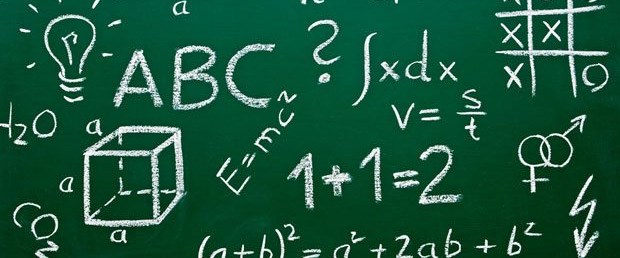 a
ABC
?
∫xdx
X X
X O
v = s/t
H₂O
a
a
a
E=mc²
1+1=2
CO₂
(a+b)² = a² + 2ab + b²